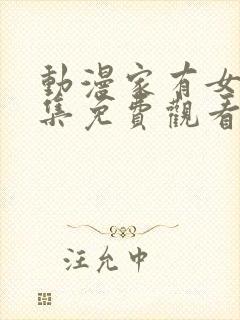 動漫家有女
集免費觀看
汪允中